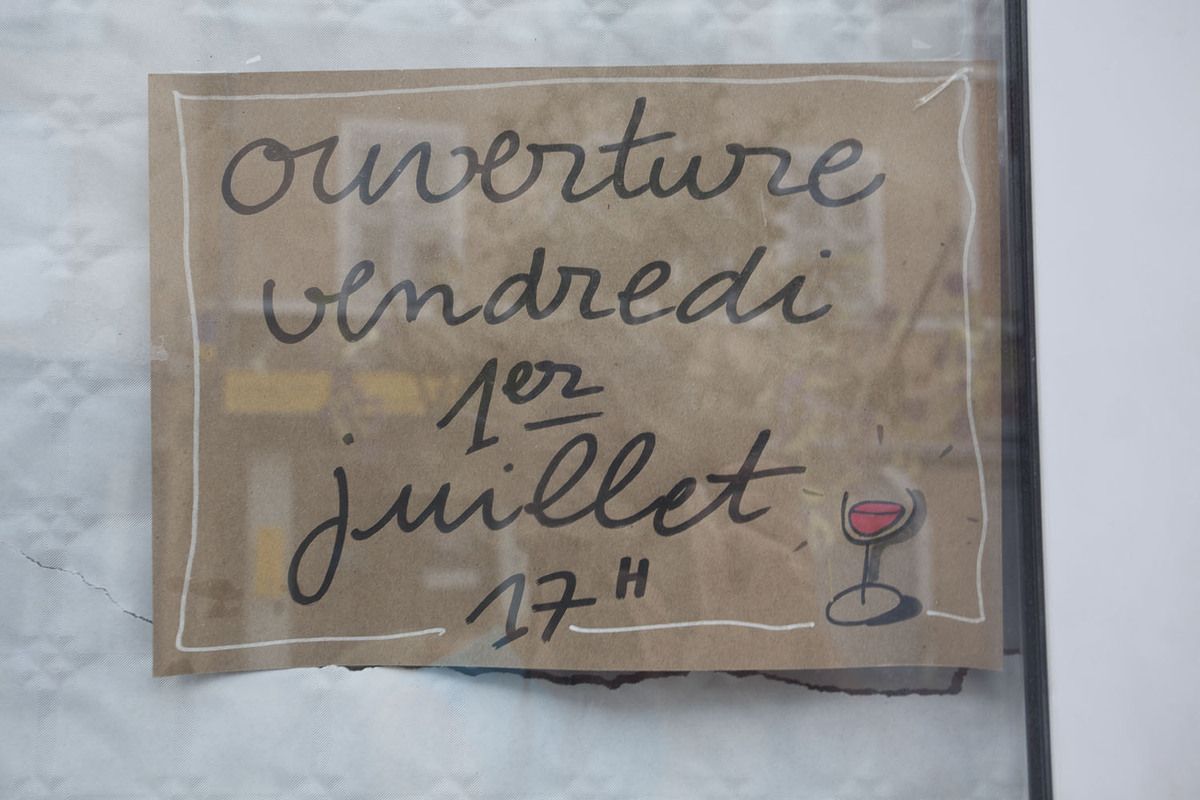 ouverture
vendredi
1er
juillet
17H